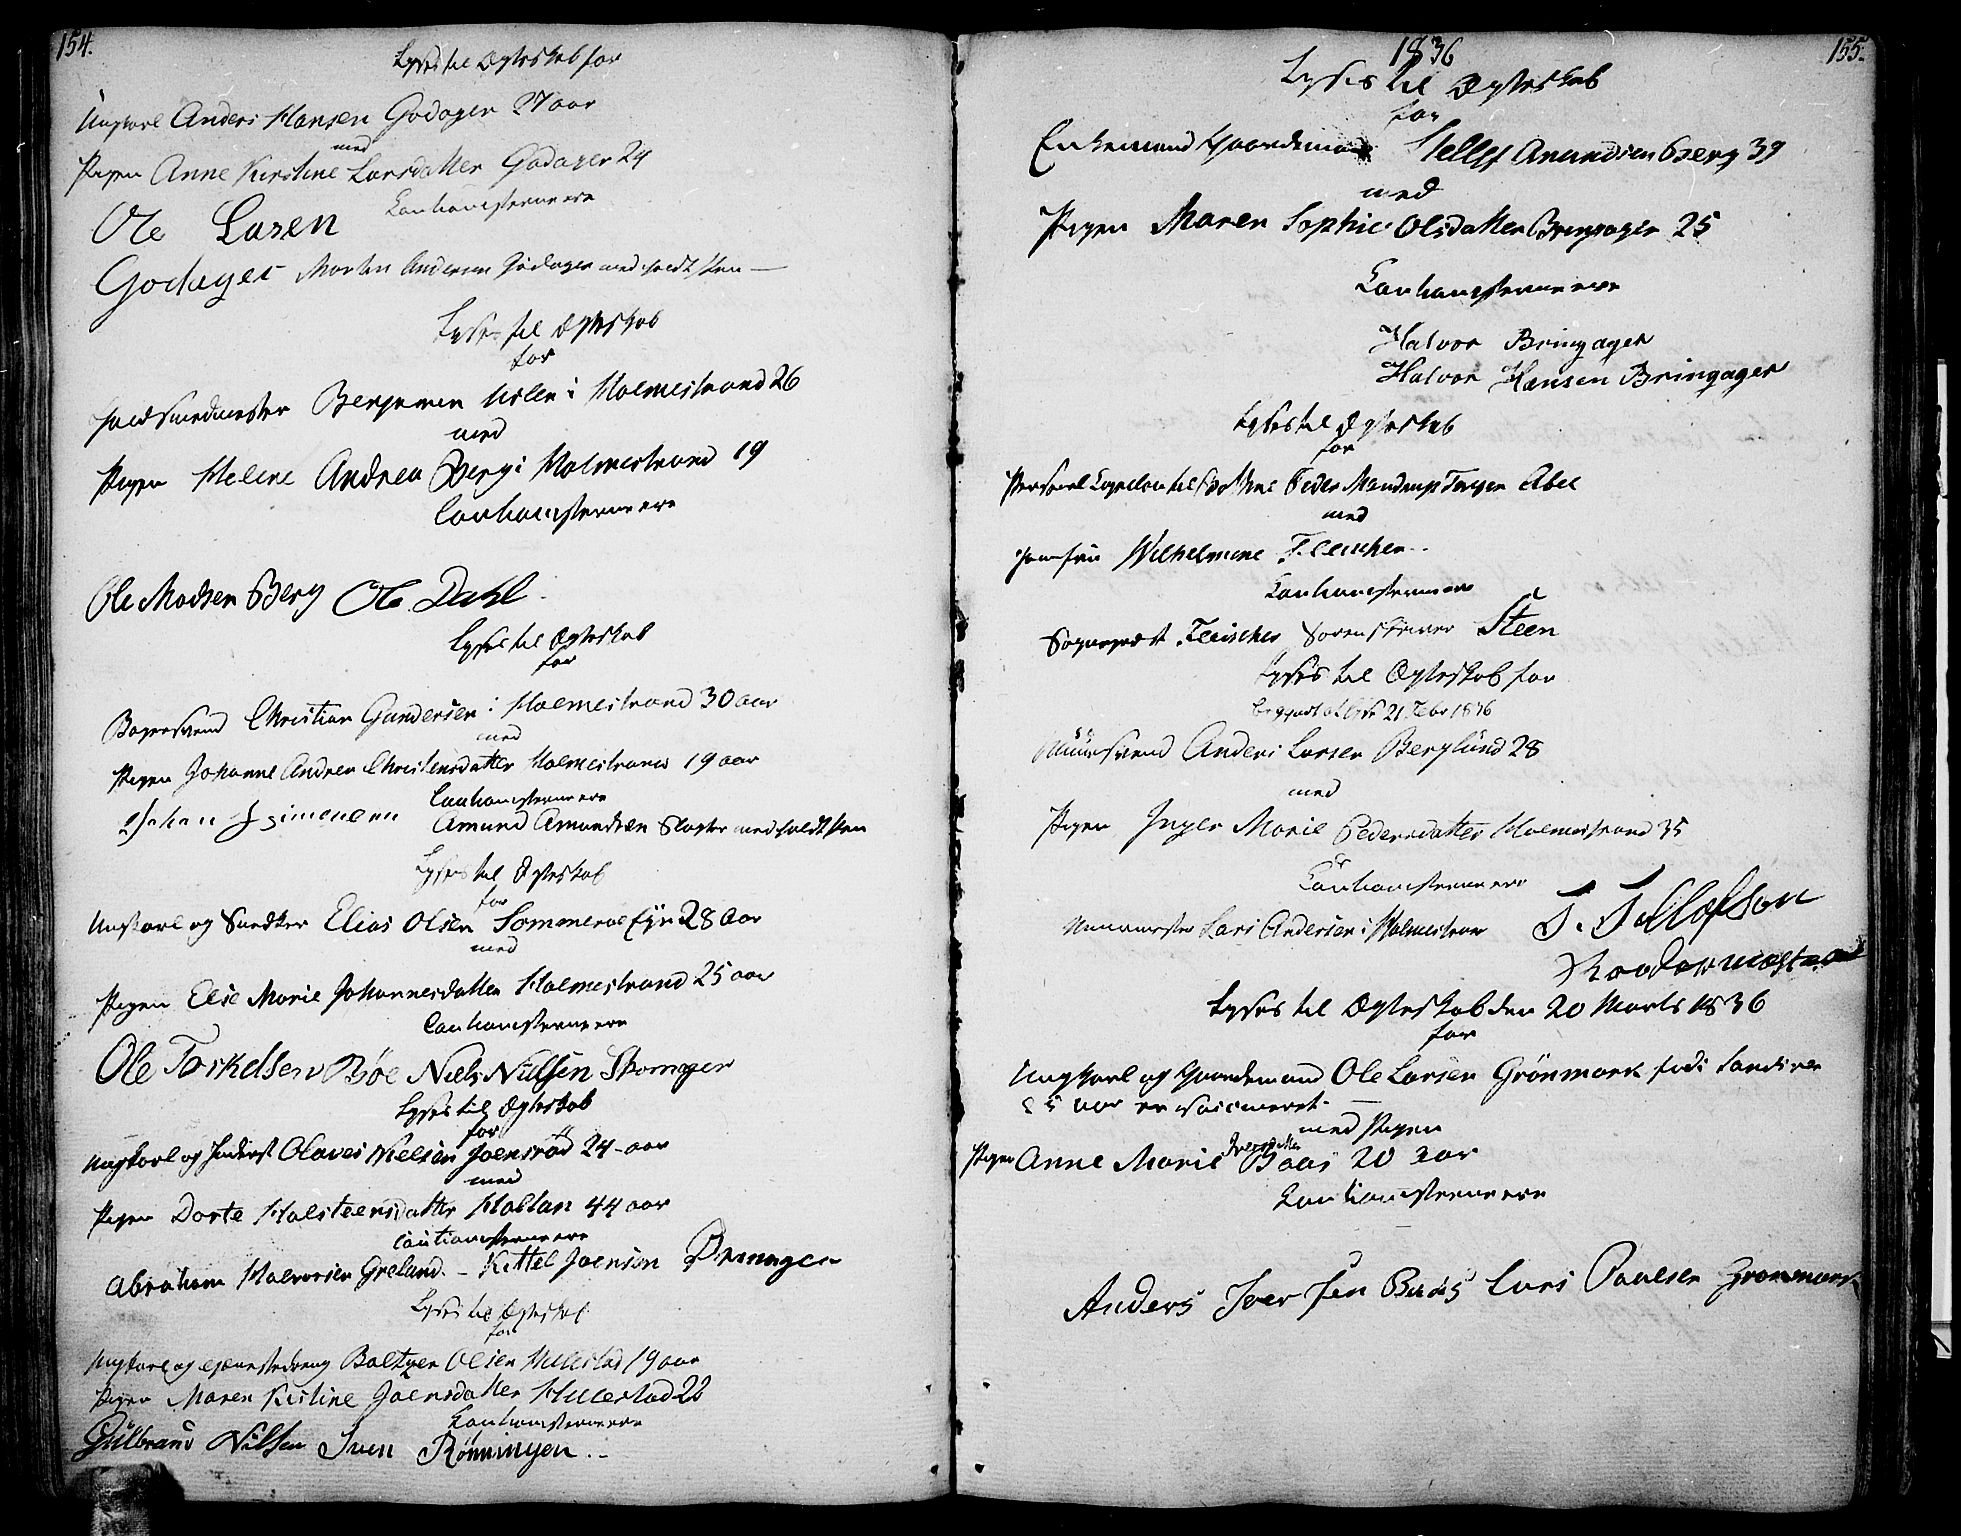 154.
Lyses til Ægteskab for
Ungkarl Anders Hansen Godager 27 aar
med
Pigen Anne Kirstine Larsdatter Godager 24
Cautionisterne ere
Ole Lasen
Godager Morten Andersen Godager med holdt Pen —
Lyses til Ægteskab
for
Benjamin i Holmestrand 26
med
Pigen Helene Andrea Berg i Holmestrand 19
Cautionisterne ere
Ole Madsen Berg Ole Dahl.
Lyses til Ægteskab
for
Bagersvend Christian Gundersen i Holmestrand 30 aar
med
Pigen Johanne Andrea Christensdatter Holmestrand 19 aar
Cautionisterne ere
Johan Amund Amundsen med holdt Pen
Lyses til Ægteskab
for
Ungkarl og Snedker Elias Olsen 28 Aar
med
Pigen Elise Marie Johannesdatter Holmestrand 25 aar
Cautionisterne ere
Ole Torkelsen Bøe Niels Nielsen Skomager
Lyses til Ægteskab
for
Ungkarl og Inderst Olaves Nielsen Joensrød 24 - aar
med
Pigen Dorte Holsteensdatter Haltan 44 aar
Cautionisterne ere
Abraham Halvorsen Greland. — Kittel Joensen
Lyses til Ægteskab
for
Ungkarl og Tjenestedreng Baltzer Olsen Hillestad 19 aar
Pigen Maren Kistine Joensdatter Hillestad 22
Cautionisterne ere
Gulbrand Nilsen Sven Rønningen . –
1836
155.
Lyses til Ægteskab
for
Enkemand Gaardemand Anundsen Berg 39
med
Pigen Maren Sophie Olsdatter Bringager 25
Cautionisterne ere
Halvor Bringager
Halvor Hansen Bringager
Lyses til Ægteskab
for
Personel Capelan til Peder Mandrup Abel
med
Jomfru Wilhelmine Fleischer..
Cautionisterne ere
Sognepræst Fleischer Sorenskriver Steen
Lyses til Ægteskab for
begyndt at lyse 21 Febr 1836
Muursvend Anders Larsen Berglund 28
med
Pigen Inger Marie Pedersdatter Holmestrand 35
Cautionisterne ere
Muurmester Lars Andersen i Holmestrand T. Tollofsen
Lyses til Ægteskab den 20 Marts 1836
for
Ungkarl og Gaardemand Ole Larsen Grönmark
25 aar er vaccineret -
med Pigen
Pigen Anne Marie Iversdatter Baas 20 aar
Cautionisterne ere
Anders Iversen Baas Lars Paulsen Grønmark